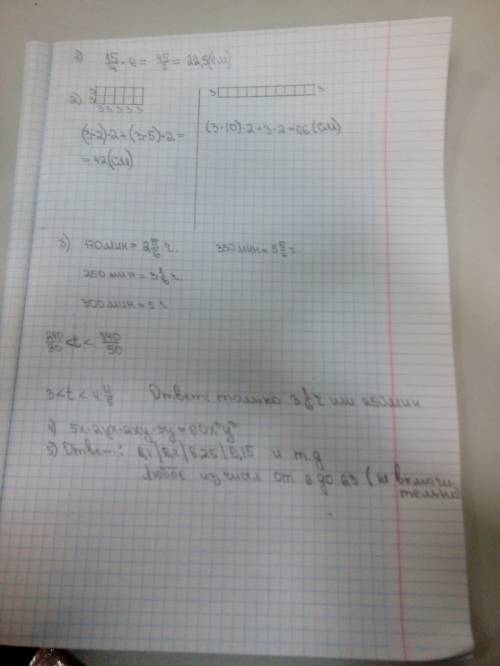 1) 45/4 · 4 = 45/2 = 22,5 (см)
2)
3 3 3 3 3
3 3
(3·2)·2+(3·5)·2=
=42(см)
(3·10)·2+3·2=66(см)
3) 170мин = 2 5/6 ч.
350мин = 5 5/6 ч.
250 мин = 4 1/6 ч
300мин = 5 ч
240/80 <t< 240/50
3<t<4 4/5 Ответ: только ч или 250мин
4) 5x·2yx·2xy·3y=60x³y³
5) Ответ: 6,1 | 6,2 | 6,25 | 6,15 и т.д
Любое из чисел от 6 до 6,3 (не включи-
тельно)